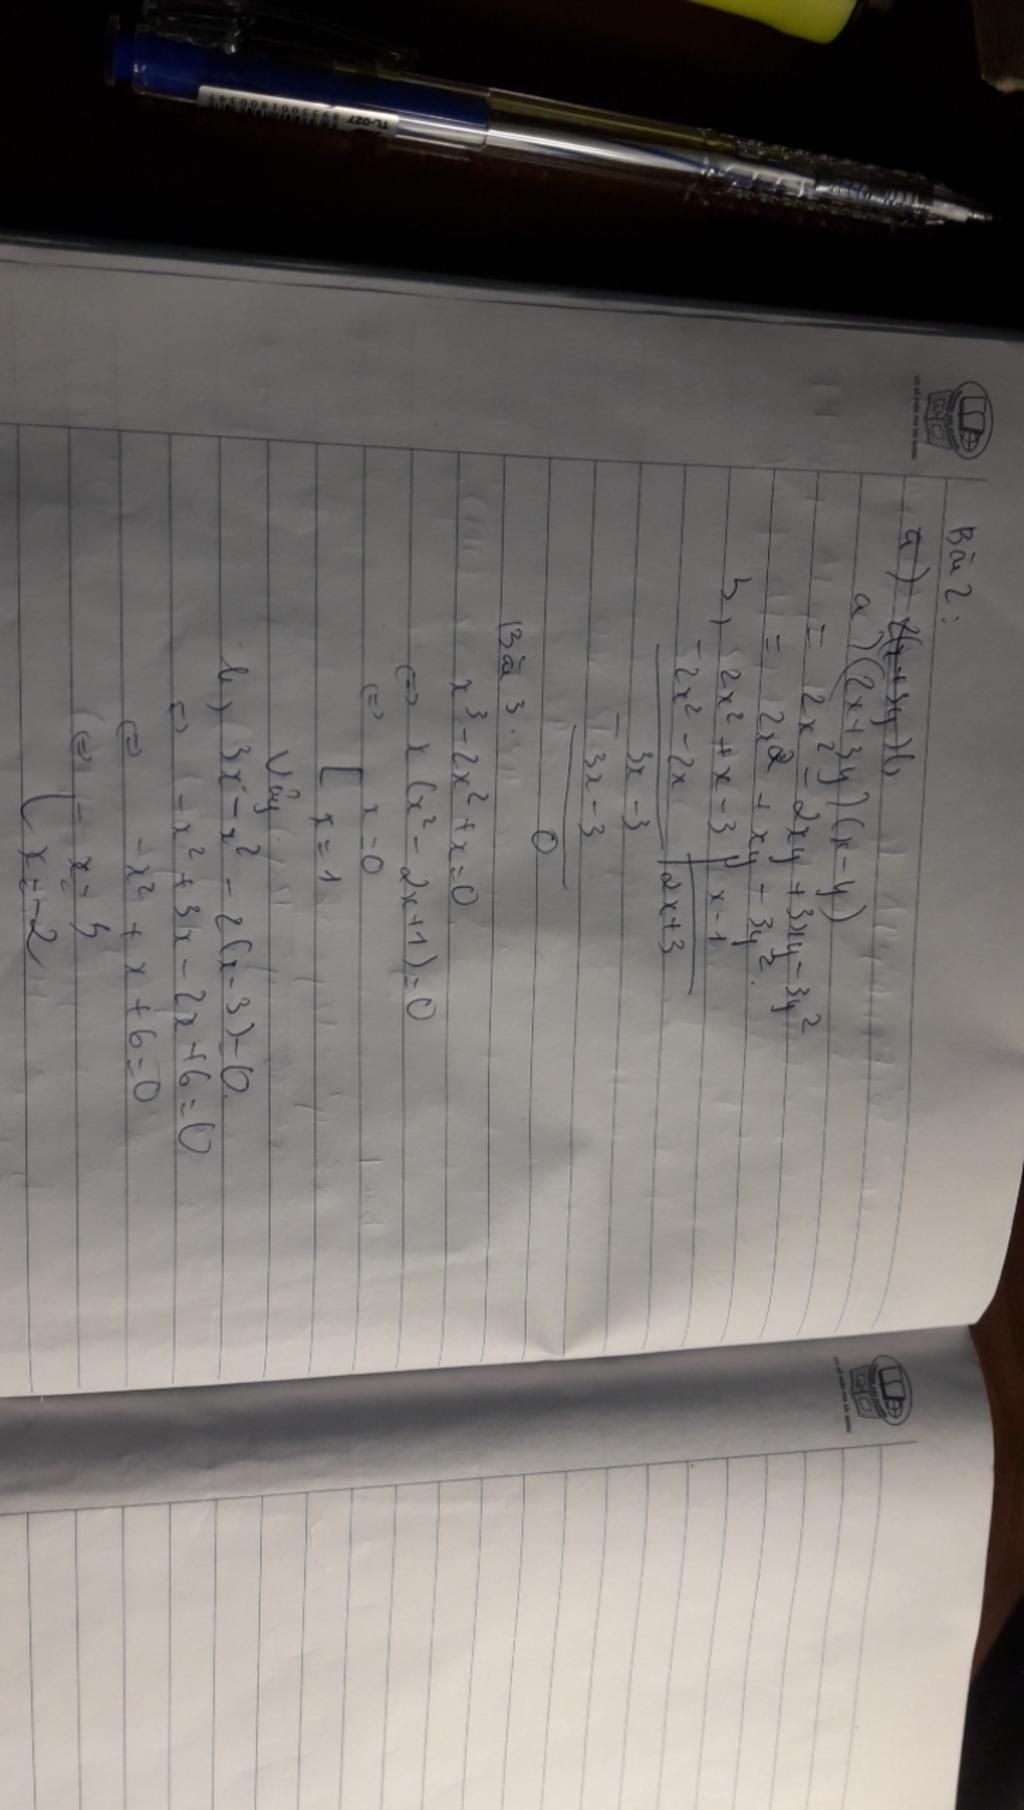 Bài 2:
a)
a) (2x+3y)(x-y)
= 2x² - 2xy + 3xy - 3y²
= 2x² + xy - 3y².
b, 2x² + x - 3 | x-1
- 2x² - 2x | 2x+3
3x - 3
- 3x - 3
0
Bài 3.
x³ - 2x² + x = 0
⇔ x (x² - 2x+1) = 0
⇔ x = 0
[ x = 1
Vậy
b, 3x - x² - 2(x-3) = 0.
⇔ - x² + 3x - 2x + 6 = 0
⇔ - x² + x + 6 = 0
⇔ x = 3
x = -2
TL-027